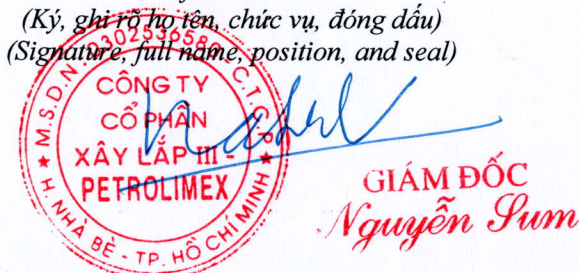 (Ký, ghi rõ họ tên, chức vụ, đóng dấu)
(Signature, full name, position, and seal)
M.S.D.N: 0302536580 - C.T.C.P
CÔNG TY
CỔ PHẦN
XÂY LẮP III -
PETROLIMEX
H. NHÀ BÈ - TP. HỒ CHÍ MINH
GIÁM ĐỐC
Nguyễn Sum